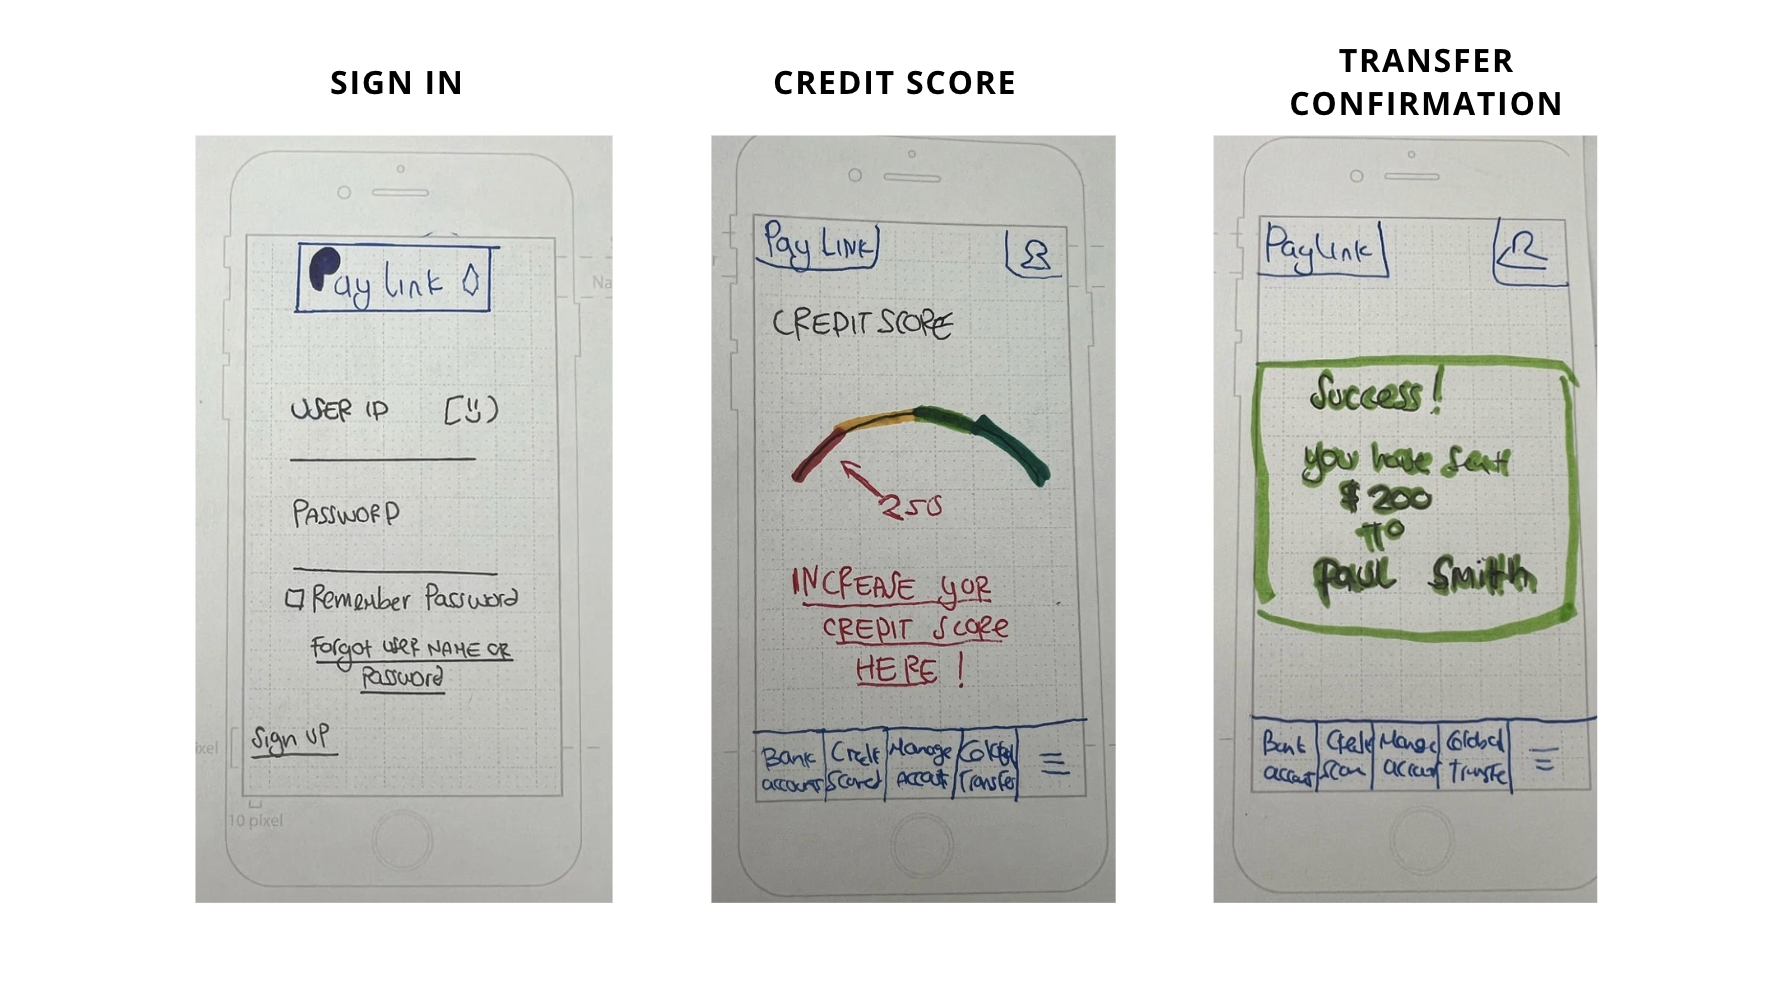 SIGN IN
Pay Link
USER ID
PASSWORD
Remember Password
Forgot USER NAME OR
Password
Sign UP
xel
10 pixel
Na
CREDIT SCORE
Pay LINK
CREDIT SCORE
250
INCREASE YOR
CREDIT SCORE
HERE !
Bank
accounts
Manage
Global
Transfer
TRANSFER
CONFIRMATION
Pay Link
Success!
you have sent
$ 200
TO
PAUL Smith
Bank
Global